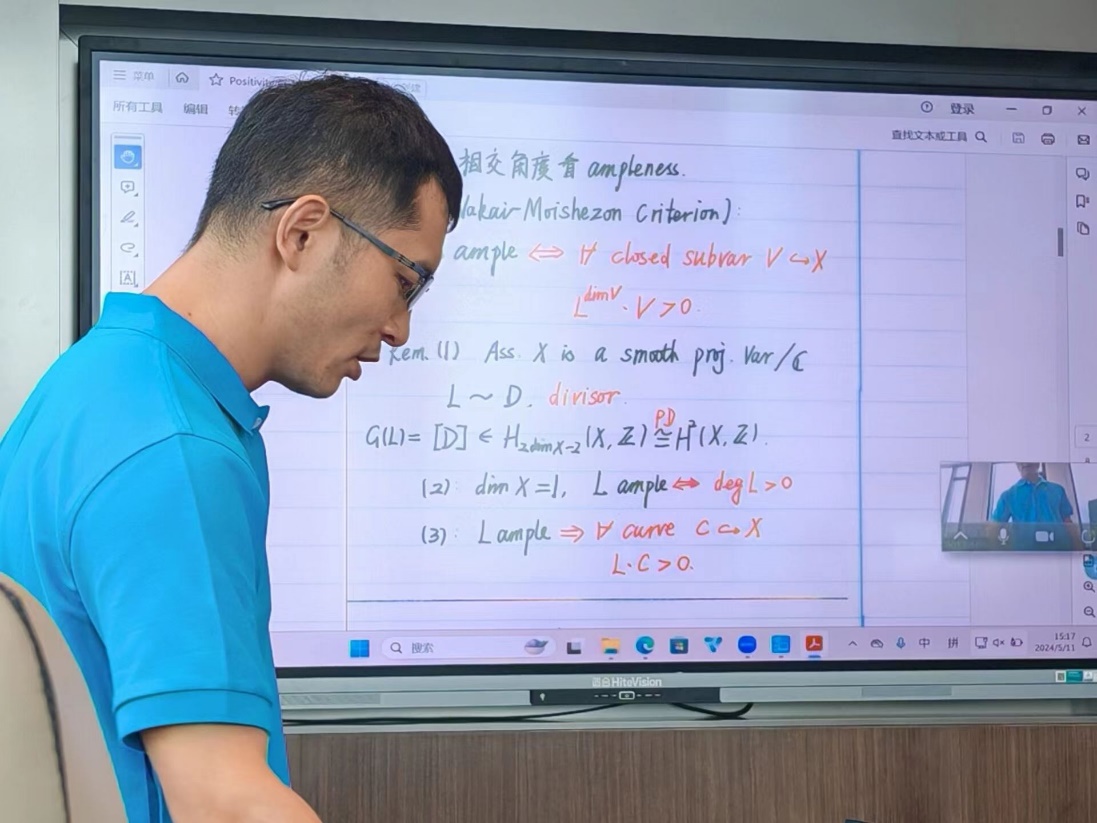 菜单
Positivi
所有工具 编辑
登录
查找文本或工具
相交角度看 ampleness.
lakai-Moishezon Criterion):
ample ⇔ ∀ closed subvar V ↪ X
L^{dimV} · V > 0.
Rem. (1) Ass. X is a smooth proj. var/ℂ
L ~ D. divisor.
C₁(L) = [D] ∈ H_{2dimX-2}(X, ℤ) ≅^{PD} H²(X, ℤ).
(2): dim X = 1, L ample ⇔ deg L > 0
(3): L ample ⇒ ∀ curve C ↪ X
L·C > 0.
2
搜索
中 拼
15:17
2024/5/11
HiteVision